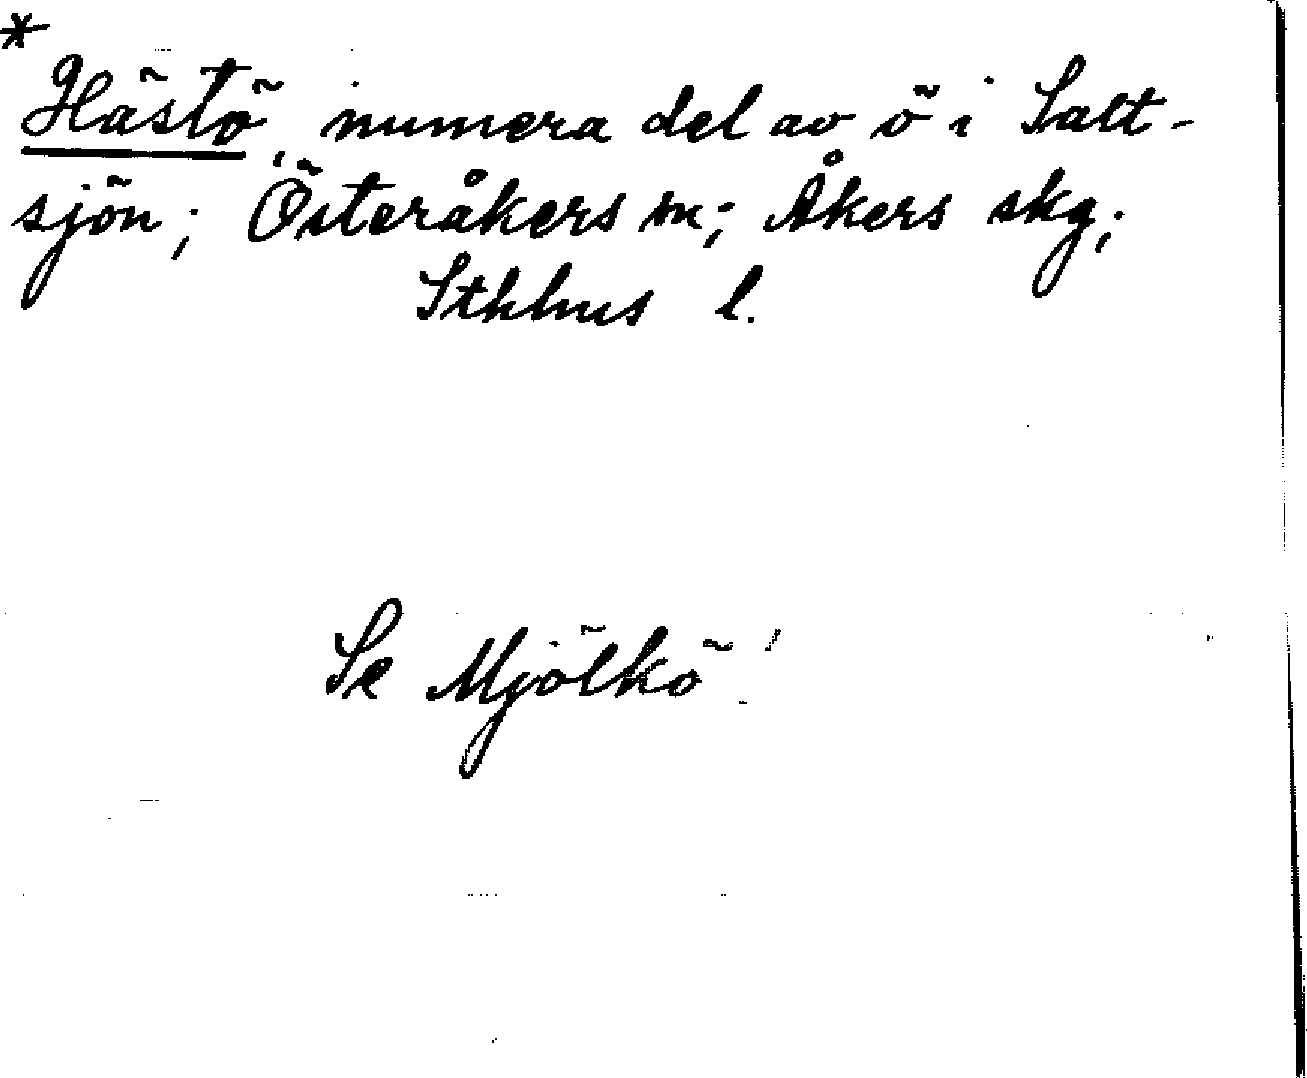 *
Hästö, numera del av ö i Salt-
sjön; Österåkers sn; Åkers skg;
Sthlms l.
Se Mjölkö!